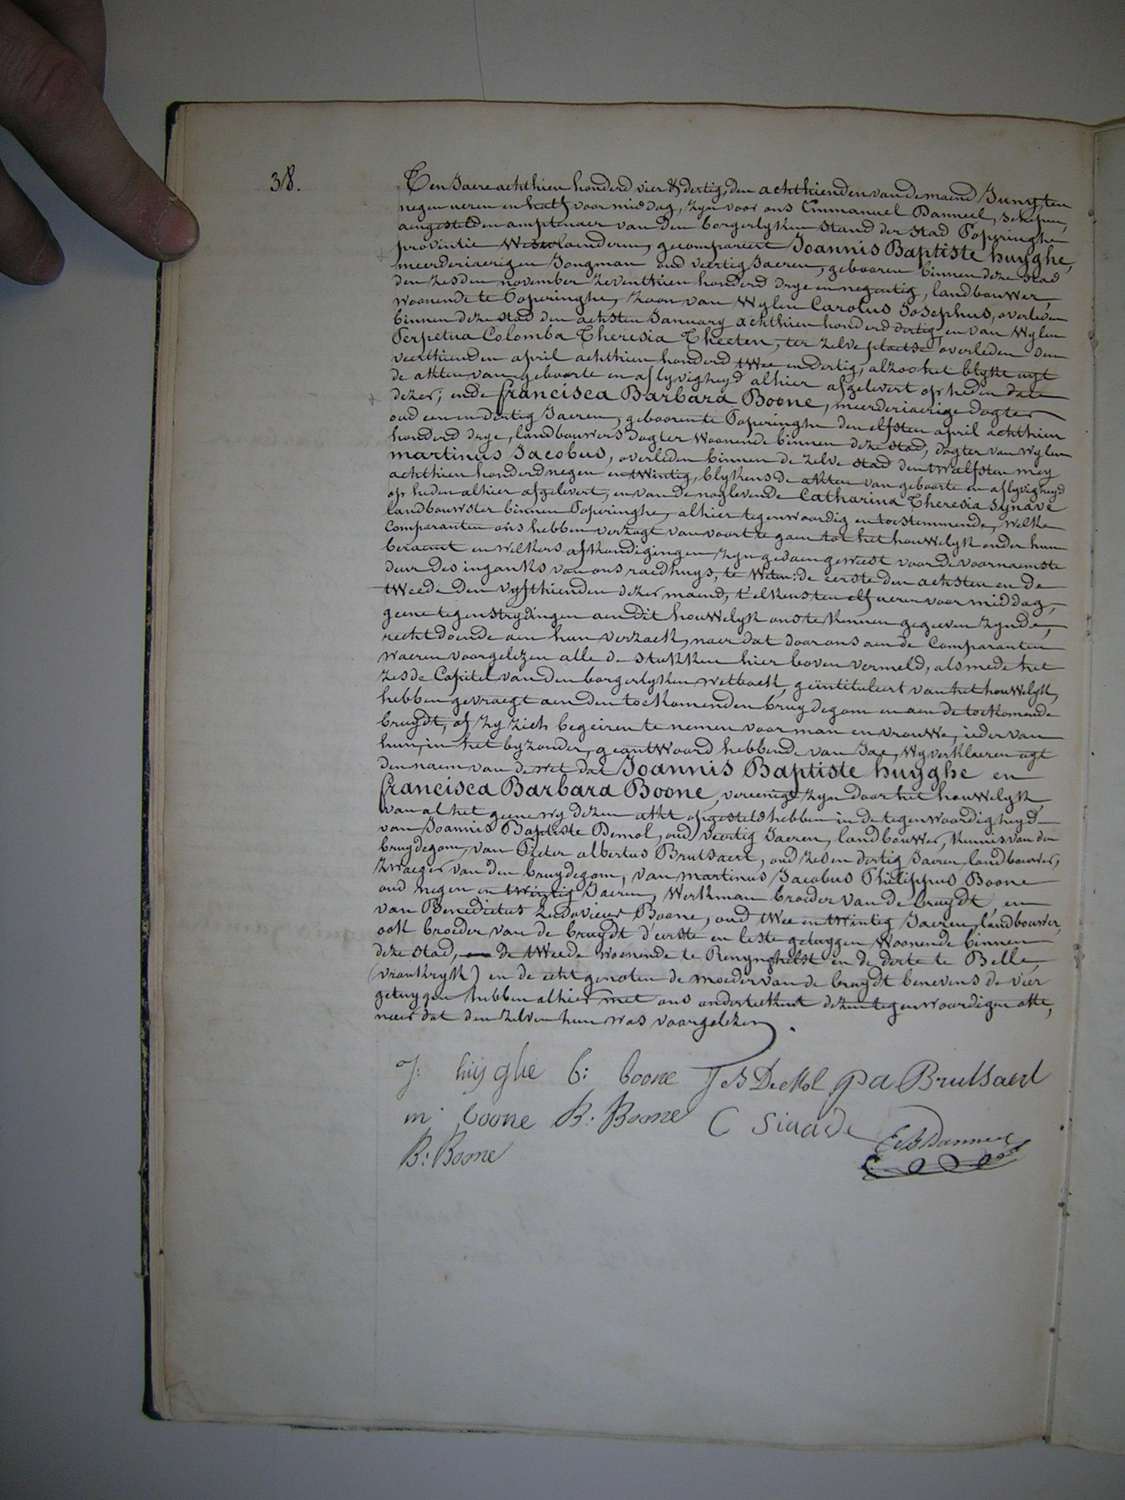 38.
Ten Jaere achthien honderd vier & dertig, den achthienden van de maend Juny, ten
negen uren en half voor middag, zyn voor ons Emmanuel Danneel, schepen,
aengestelden amptenaer van den borgerlyken stand der stad Poperinghe
provintie Westvlaanderen, gecompareert Joannis Baptiste huyghe,
meerderjaerigen Jongman oud veertig Jaeren, gebooren binnen deze stad
den zesden november zeventhien honderd drye en negentig, landbouwer,
woonende te Poperinghe, zoon van Wylen Carolus Josephus, overleden
binnen deze stad den achsten January achthien honderd dertig, en van Wylen
Perpetua Colomba Theresia Theeten, ter zelve plaetse overleden den
veerthienden april achthien honderd twee en dertig, alzoo het blykt uyt
de akten van geboorte en aflyvigheyd alhier afgelevert op heden date
dezer; ende francisca Barbara Boone, meerderjaerige dogter
oud een en dertig Jaeren, geboren te Poperinghe den elfsten april achthien
honderd drye, landbouwers dogter woonende binnen deze stad, dogter van Wylen
martinus Jacobus, overleden binnen de zelve stad den twalfsten mey
achthien honderd negen en twintig, blykens de akten van geboorte en aflyvigheyd
op heden alhier afgelevert, en van de naglevende Catharina Theresia Synave
landbouwster binnen Poperinghe, alhier tegenwoordig en toestemmende, welke
Comparanten ons hebben verzogt van voort te gaen tot het houwelyk onder hun
beraemt en welkers afkondigingen zyn gedaen geweest voor de voornaemste
deur des inganks van ons raedhuys, te Weten: de eerste den achsten en de
tweede den vyfthienden dezer maend, t'elkens ten elf uren voor middag,
geene tegenstrydingen aen dit houwelyk ons te kennen gegeven zynde,
recht doende aen hun verzoek, naer dat door ons aen de Comparanten
waeren voorgelezen alle de stukken hier boven vermeld, als mede het
zesde Capitel van den borgerlyken wetboek, geïntituleert van het houwelyk,
hebben gevraegt aen den toekomenden bruydegom en aen de toekomende
bruydt, of zy zich begeiren te nemen voor man en vrouwe, ieder van
hun in het byzonder geantwoord hebbende van Jae, Wy verklaeren uyt
den naem van de wet dat Joannis Baptiste huyghe en
francisca Barbara Boone, vereenigt zyn door het houwelyk,
van al het geene wy dezen akt opgesteld hebben in de tegenwoordigheyd
van Joannis Baptiste Demol, oud veertig Jaeren, landbouwer, kennis van den
bruydegom, van Pieter albertus Brutsaert, oud zes en dertig Jaeren landbouwer,
zwaeger van den bruydegom, van martinus Jacobus Philippus Boone
oud negen en twintig Jaeren, Werkman broeder van de bruydt, en
van Benedictus Ludovicus Boone, oud twee en twintig Jaeren, landbouwer,
ook broeder van de bruydt d'eerste en leste getuygen woonende binnen
deze stad, de tweede woonende te Renynghelst en de derde te Belle
(vrankryk) en de echtgenoten de moeder van de bruydt benevens de vier
getuygen hebben alhier met ons onderteekent dezen tegenwoordigen akte,
naer dat den zelven hun was voorgelezen.
J: huyghe b: boone J B DeMol pa Brutsaert
m: boone B: Boone C Sinave
B: Boone